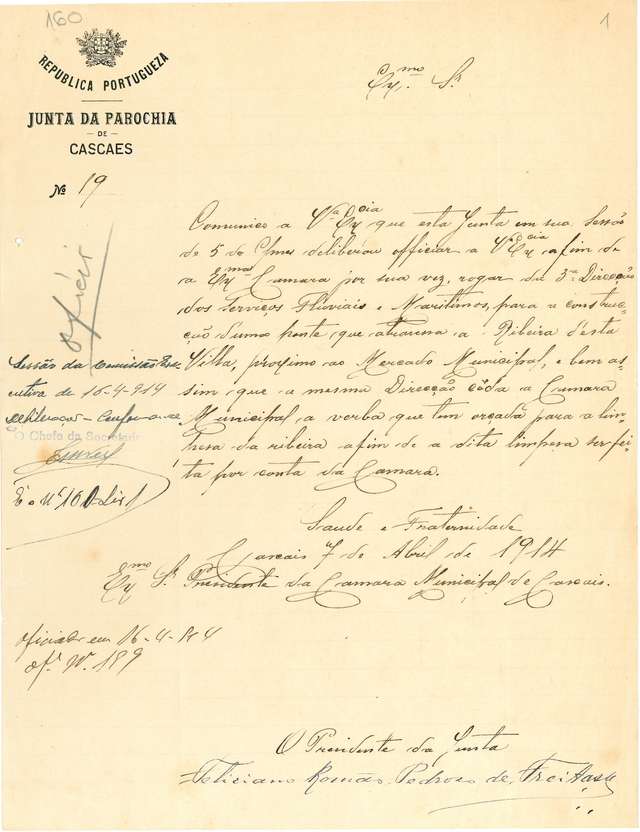 160
1
REPUBLICA PORTUGUEZA
JUNTA DA PAROCHIA
DE
CASCAES
Nº 19
Exmo. Sr.
Communico a Va Excia que esta Junta em sua Sessão
de 5 do deliberou officiar a V Excia afim de
a Exma Camara por sua vez, rogar da 3ª Direcção
dos Serviços Fluviais e Maritimos, para a constru-
cção d'uma ponte que atravessa a Ribeira d'esta
Villa, proximo ao Mercado Municipal, e bem as-
sim que a mesma Direcção cêda a Camara
Municipal a verba que tem orçada para a lim-
peza da ribeira afim de a dita limpeza ser fei-
ta por conta da Camara.
Saude e Fraternidade
Cascais 7 de Abril de 1914
Exmo Sr. Presidente da Camara Municipal de Cascais.
Oficiar
Sessão da Comissão Exe-
cutiva de 16-4-914
Deliberação -
O Chefe da Secretaria
É o Nº 160
oficiado em 16-4-914
of. Nº 189
O Presidente da Junta
Feliciano Romão Pedroso de Freitas